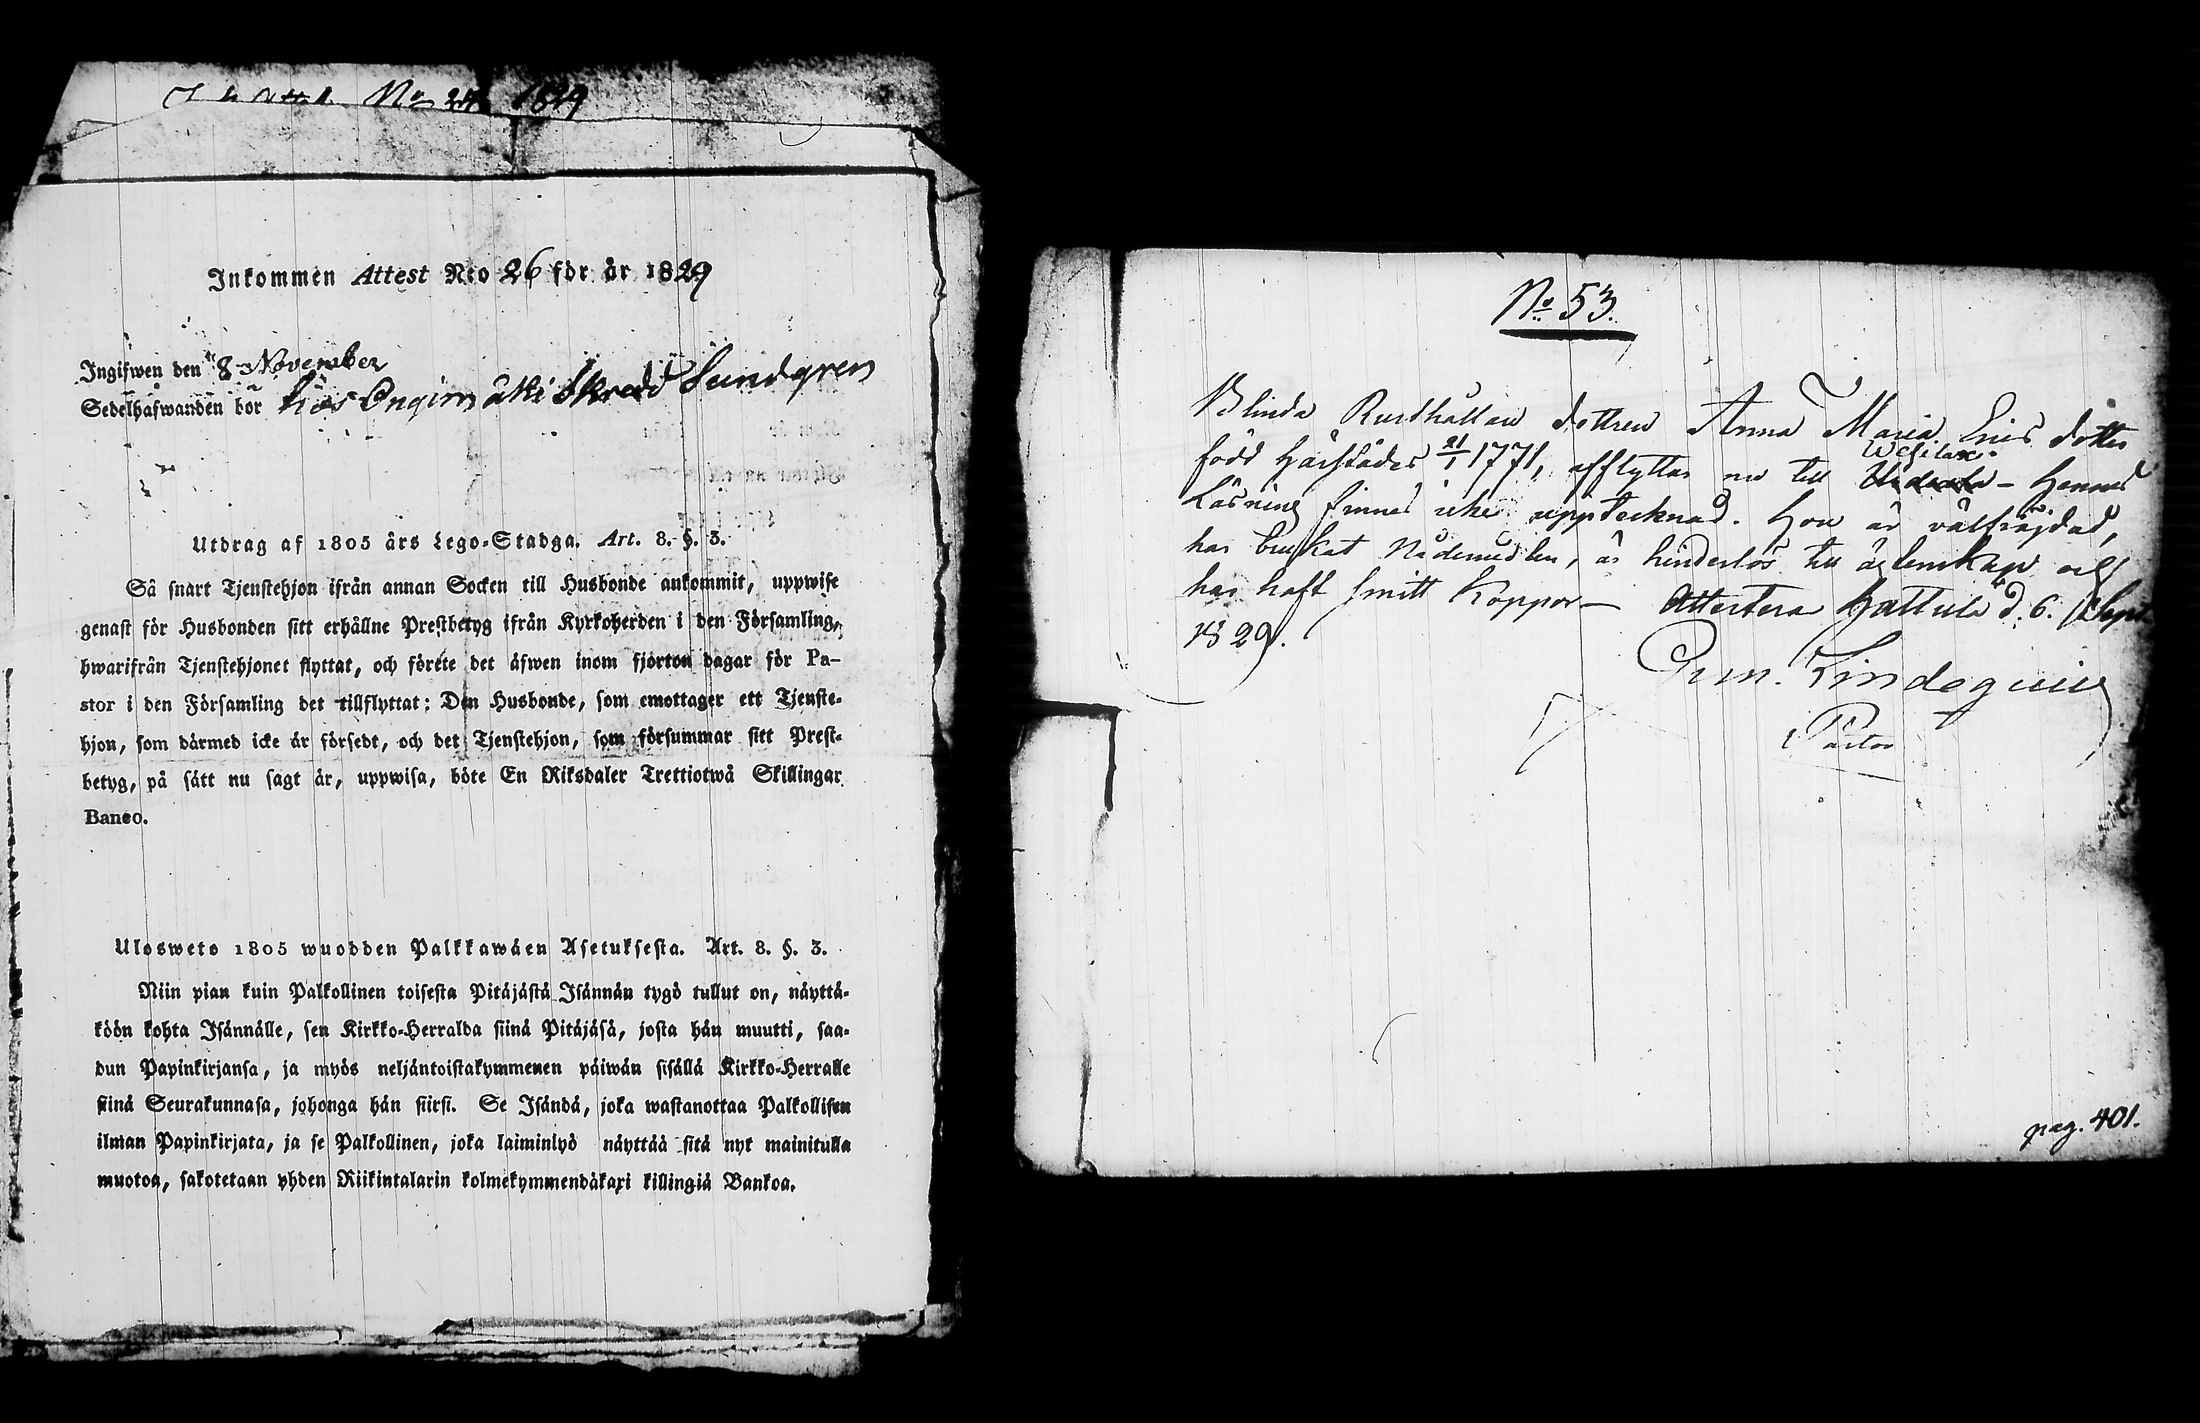 No 24 1829
Inkommen Attest Nro 26 för år 1829
Ingifwen den 8 November
Sedelhafwanden bor hos Ongin mäki Skredd Sundgren
Utdrag af 1805 års Lego-Stadga. Art. 8. §. 3.
Så snart Tjenstehjon ifrån annan Socken till Husbonde ankommit, uppwise
genast för Husbonden sitt erhållne Prestbetyg ifrån Kyrkoherden i den Församling,
hwarifrån Tjenstehjonet flyttat, och förete det äfwen inom fjorton dagar för Pa-
stor i den Församling det tillflyttat: Den Husbonde, som emottager ett Tjenste-
hjon, som därmed icke är försedt, och det Tjenstehjon, som försummar sitt Prest-
betyg, på sätt nu sagt är, uppwisa, böte En Riksdaler Trettiotwå Skillingar
Banco.
Ulosweto 1805 wuodden Palkkawäen Asetuksesta. Art. 8. §. 3.
Niin pian kuin Palkollinen toisesta Pitäjästä Isännän tygö tullut on, näyttä-
köön kohta Isännälle, sen Kirkko-Herralda siinä Pitäjäsä, josta hän muutti, saa-
dun Papinkirjansa, ja myös neljäntoistakymmenen päiwän sisällä Kirkko-Herralle
siinä Seurakunnasa, johonga hän siirsi. Se Isändä, joka wastanottaa Palkollisen
ilman Papinkirjata, ja se Palkollinen, joka laiminlyö näyttää sitä nyt mainitulla
muotoa, sakotetaan yhden Riikintalarin kolmekymmendäkaxi killingiä Bankoa.
No 53.
Blinda Rusthållare dottren Anna Maria Ersdotter
född härstädes 21/1 1771, afflyttar nu till Wesilax - Hennes
Läsning finnes icke upptecknad. Hon är välfräjdad,
har brukat Nådemedlen, är hinderlös till ägtenskap och
har haft smitt koppor - Attestera Hattula d. 6. Sept
1829.
Lindeqvist
Pastor
pag. 401.